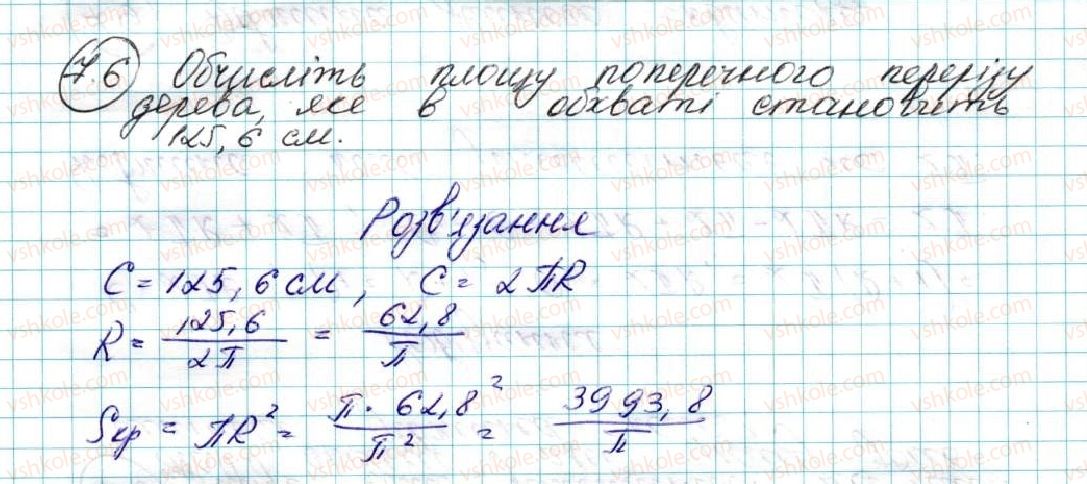 7.6 Обчисліть площу поперечного перерізу
дерева, яке в обхваті становить
125,6 см.
Розв'язання
C = 125,6 см, C = 2ПR
R = 125,6 / 2П = 62,8 / П
Sкр = ПR² = П · 62,8² / П² = 3993,8 / П